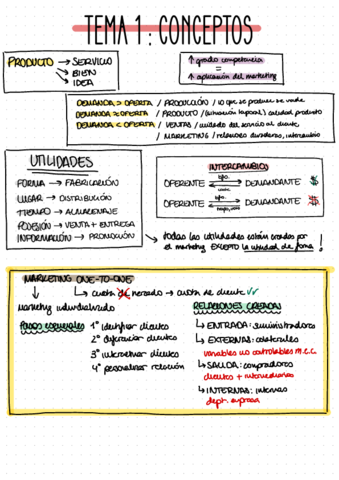 TEMA 1: CONCEPTOS
PRODUCTO → SERVICIO
→ BIEN
→ IDEA
↑ grado competencia
=
↑ aplicación del marketing
DEMANDA > OFERTA / PRODUCCIÓN / lo que se produce se vende
DEMANDA ≈ OFERTA / PRODUCTO / calidad producto
DEMANDA < OFERTA / VENTAS / cuidado del servicio al cliente
/ MARKETING / relaciones duraderas, intercambio
UTILIDADES
FORMA → FABRICACIÓN
LUGAR → DISTRIBUCIÓN
TIEMPO → ALMACENAJE
POSESIÓN → VENTA + ENTREGA
INFORMACIÓN → PROMOCIÓN
INTERCAMBIO
OFERENTE DEMANDANTE $
OFERENTE DEMANDANTE $
→ todas las utilidades están creadas por
el marketing EXCEPTO la utilidad de forma!
MARKETING ONE-TO-ONE
→ cuota de mercado → cuota de cliente ✓✓
Marketing individualizado
Pasos esenciales
1º identificar clientes
2º diferenciar clientes
3º interactuar clientes
4º personalizar relación
RELACIONES CREADAS
→ ENTRADA: suministradores
→ EXTERNAS: colaterales
variables no controlables m.e.c.
→ SALIDA: compradores
clientes + intermediarios
→ INTERNAS: internas
dept. empresa